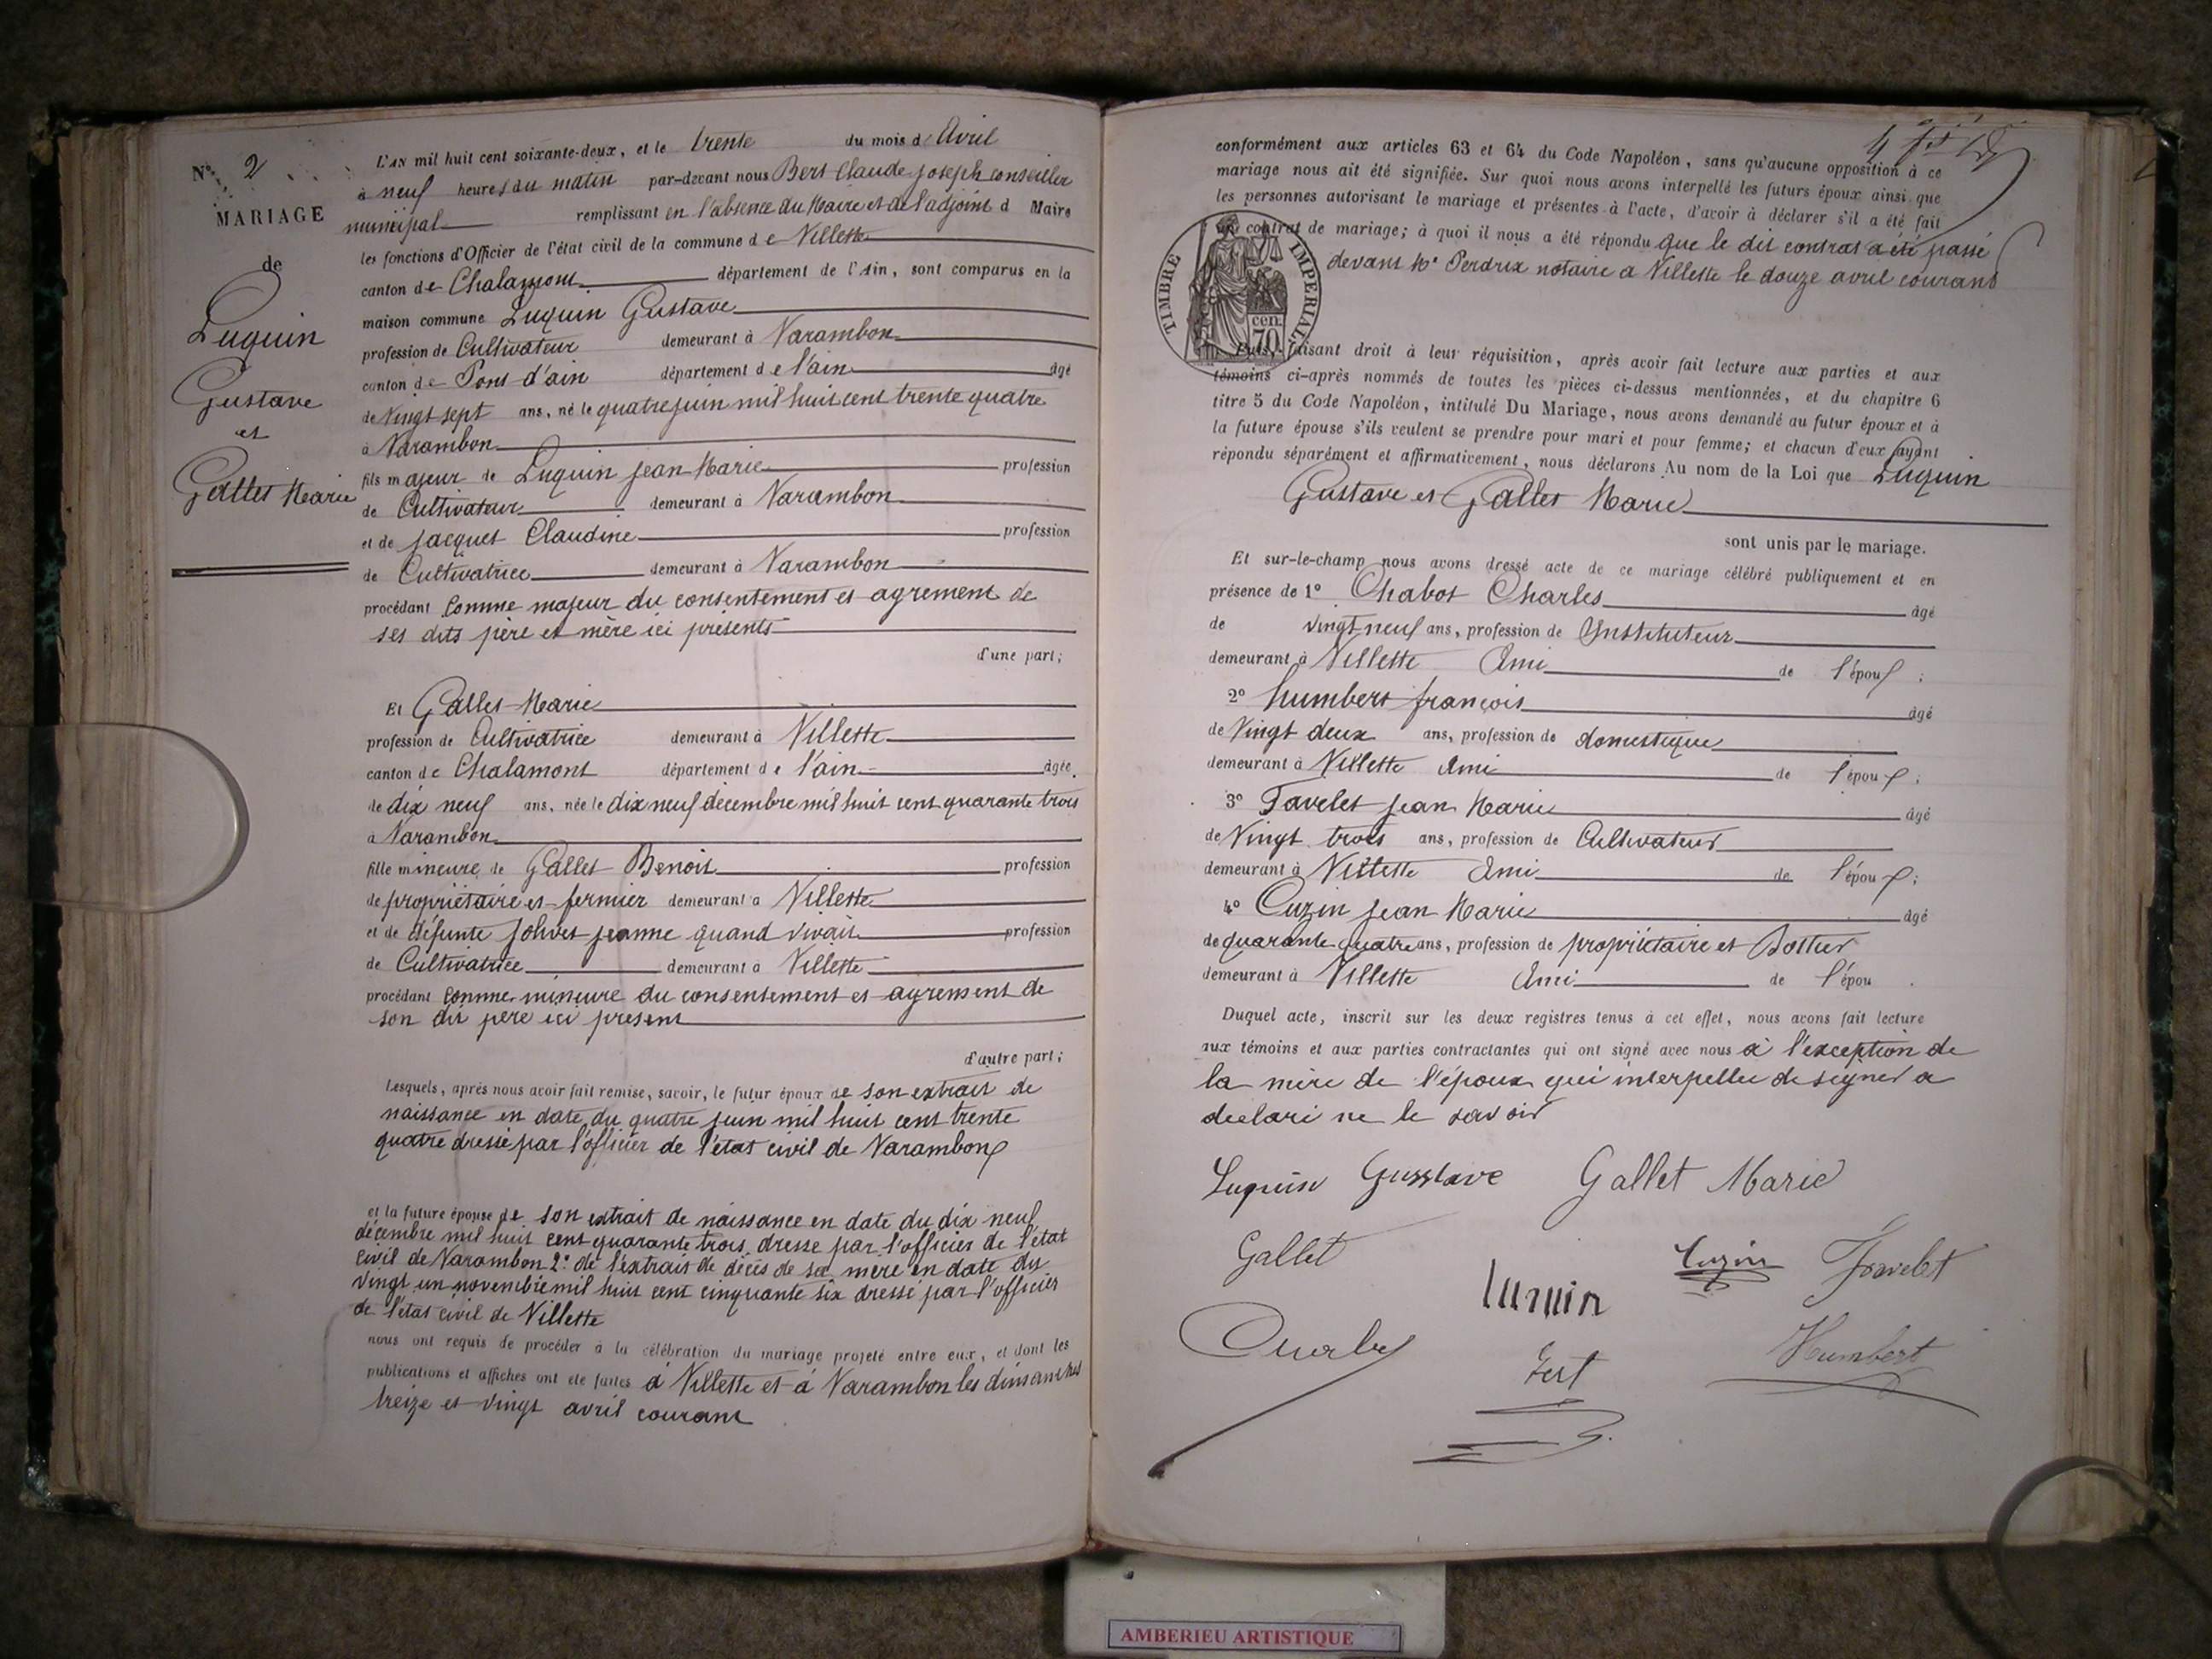 N° 2
MARIAGE
de
Luquin
Gustave
et
Gallet Marie
L'AN mil huit cent soixante-deux, et le trente du mois d'Avril
à neuf heures du matin par-devant nous Bert Claude Joseph conseiller
municipal remplissant en l'absence du Maire et de l'adjoint d Maire
les fonctions d'Officier de l'état civil de la commune de Villette
canton de Chalamont département de l'Ain, sont comparus en la
maison commune Luquin Gustave
profession de Cultivateur demeurant à Varambon
canton de Pont-d'ain département de l'ain âgé
de Vingt sept ans, né le quatre juin mil huit cent trente quatre
à Varambon
fils majeur de Luquin jean Marie profession
de Cultivateur demeurant à Varambon
et de Jacquet Claudine profession
de Cultivatrice demeurant à Varambon
procédant comme majeur du consentement et agrement de
ses dits père et mère ici présents
d'une part;
Et Gallet Marie
profession de Cultivatrice demeurant à Villette
canton de Chalamont département de l'ain âgée
de dix neuf ans, née le dix neuf décembre mil huit cent quarante trois
à Varambon
fille mineure de Gallet Benoit profession
de propriétaire et fermier demeurant à Villette
et de défunte Jolivet jeanne quand vivait profession
de Cultivatrice demeurant à Villette
procédant comme mineure du consentement et agrement de
son dit père ici présent
d'autre part;
Lesquels, après nous avoir fait remise, savoir, le futur époux de son extrait de
naissance en date du quatre juin mil huit cent trente
quatre dressé par l'officier de l'état civil de Varambon
et la future épouse de son extrait de naissance en date du dix neuf
décembre mil huit cent quarante trois dressé par l'officier de l'état
civil de Varambon 2° de l'extrait de décès de sa mère en date du
vingt un novembre mil huit cent cinquante six dressé par l'officier
de l'état civil de Villette
nous ont requis de procéder à la célébration du mariage projeté entre eux, et dont les
publications et affiches ont été faites à Villette et à Varambon les dimanches
treize et vingt avril courant
conformément aux articles 63 et 64 du Code Napoléon, sans qu'aucune opposition à ce
mariage nous ait été signifiée. Sur quoi nous avons interpellé les futurs époux ainsi que
les personnes autorisant le mariage et présentes à l'acte, d'avoir à déclarer s'il a été fait
un contrat de mariage; à quoi il nous a été répondu que le dit contrat a été passé
devant Me Perdrix notaire à Villette le douze avril courant
TIMBRE IMPERIAL
cen.
70
Puis, faisant droit à leur réquisition, après avoir fait lecture aux parties et aux
témoins ci-après nommés de toutes les pièces ci-dessus mentionnées, et du chapitre 6
titre 5 du Code Napoléon, intitulé Du Mariage, nous avons demandé au futur époux et à
la future épouse s'ils veulent se prendre pour mari et pour femme; et chacun d'eux ayant
répondu séparément et affirmativement, nous déclarons Au nom de la Loi que Luquin
Gustave et Gallet Marie
sont unis par le mariage.
Et sur-le-champ nous avons dressé acte de ce mariage célébré publiquement et en
présence de 1° Chabot Charles âgé
de vingt neuf ans, profession de Instituteur
demeurant à Villette Ami de l'épou ;
2° humbert françois âgé
de Vingt deux ans, profession de domestique
demeurant à Villette Ami de l'époux;
3° Favelet jean Marie âgé
de Vingt trois ans, profession de Cultivateur
demeurant à Villette Ami de l'époux;
4° Cuzin jean Marie âgé
de quarante quatre ans, profession de propriétaire et
demeurant à Villette Ami de l'épou .
Duquel acte, inscrit sur les deux registres tenus à cet effet, nous avons fait lecture
aux témoins et aux parties contractantes qui ont signé avec nous à l'exception de
la mère de l'époux qui interpellée de signer a
declaré ne le savoir
Luquin Gusstave Gallet Marie
Gallet Luquin Cuzin Favelet
Bert Humbert
AMBERIEU ARTISTIQUE